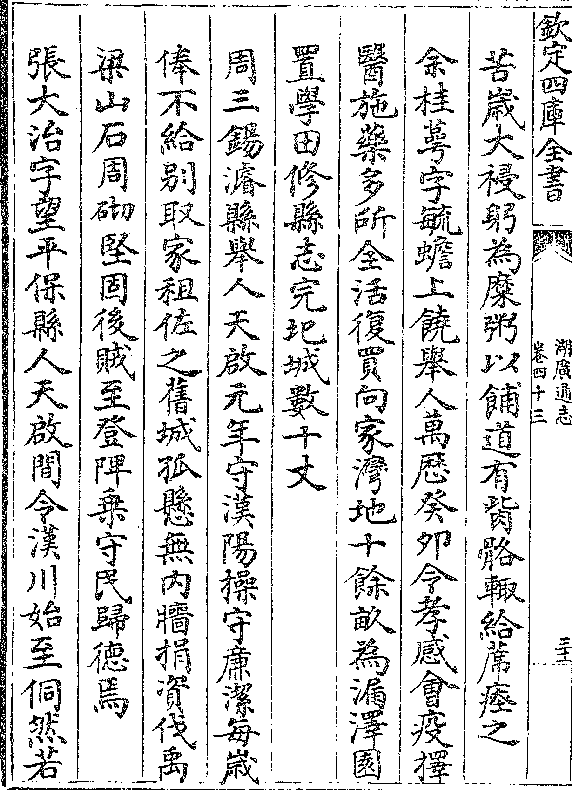 欽定四庫全書
湖廣通志
卷四十三
三十
苦歲大祲躬為糜粥以餔道有胔骼輒給蓆瘞之
余桂萼字毓蟾上饒舉人萬歷癸卯令孝感會疫擇
醫施藥多所全活復買向家灣地十餘畝為漏澤園
置學田修縣志完圮城數十丈
周三錫濬縣舉人天啟元年守漢陽操守廉潔每歲
俸不給别取家租佐之舊城孤懸無内牆捐資伐禹
梁山石周砌堅固後賊至登陴乗守民歸德焉
張大治字望平保縣人天啟間令漢川始至侗然若